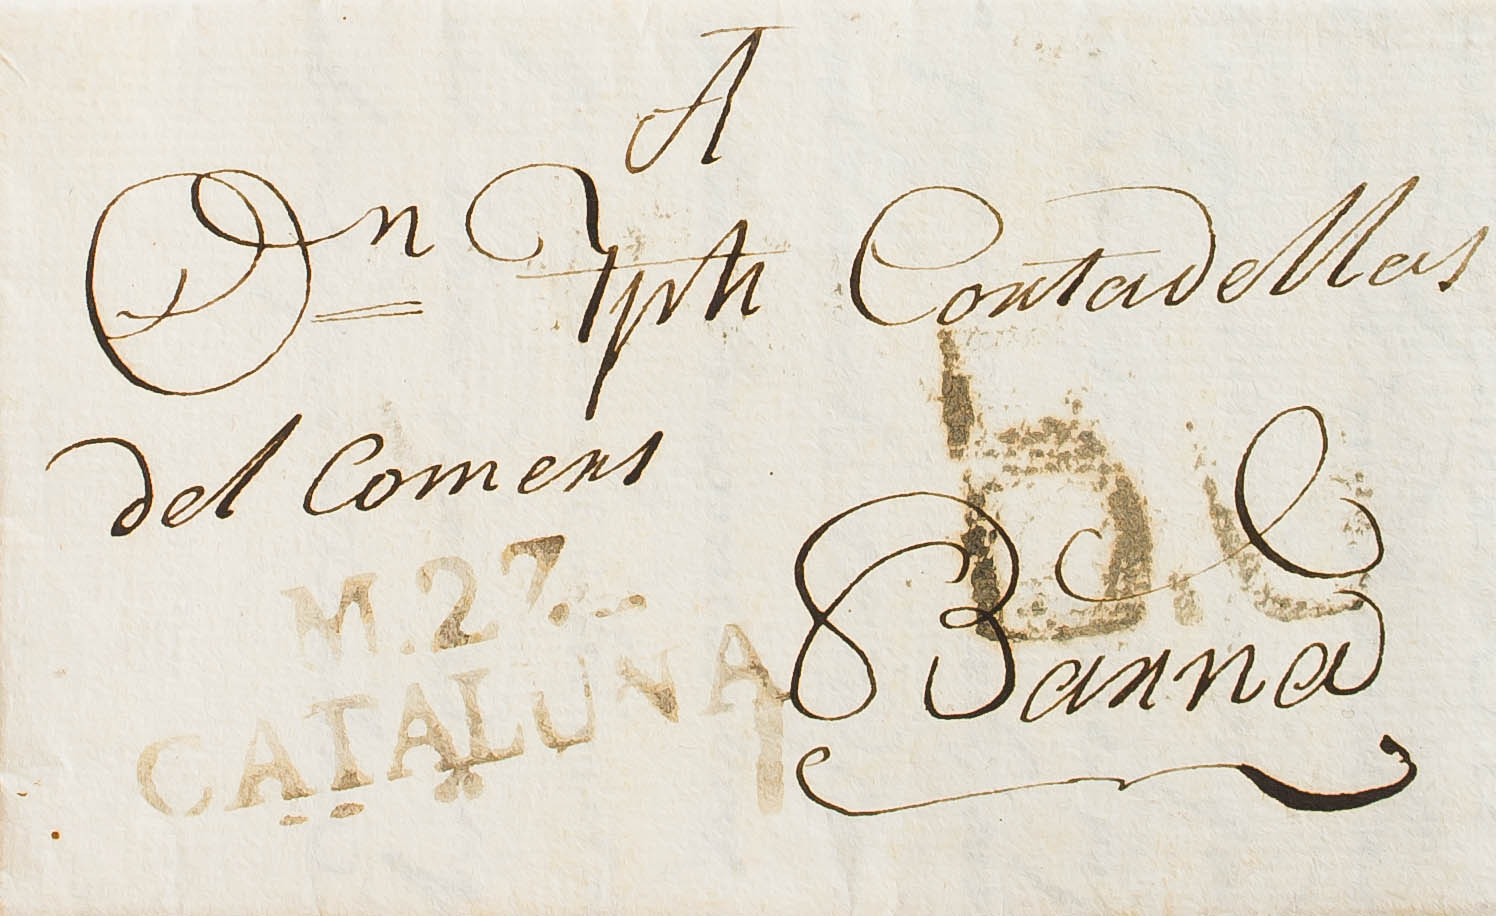 A
Dn Jph Contadellas
del Comers
M.27.
CATALUNA
Barna